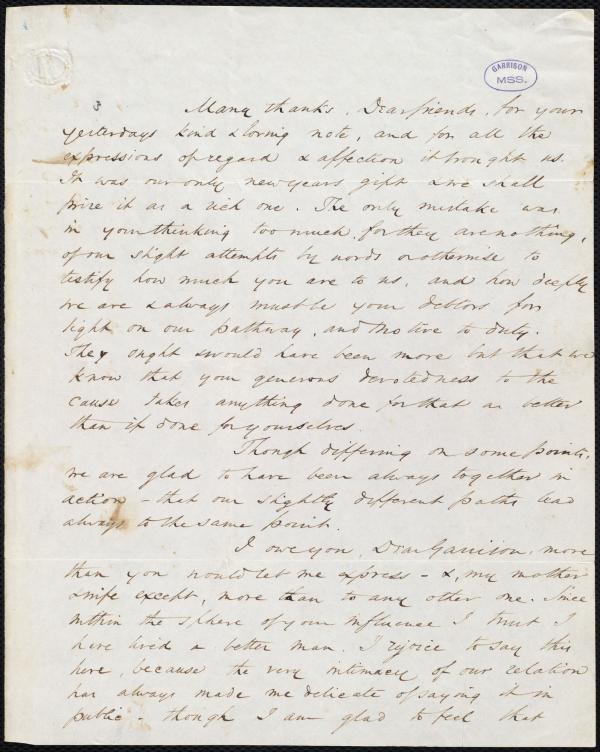 GARRISON
MSS.
Many thanks, Dear friends, for your
yesterdays kind & loving note, and for all the
expressions of regard & affection it brought us.
It was our only new years gift & we shall
prize it as a rich one. The only mistake was
in your thinking too much, for they are nothing,
of our slight attempts by words or otherwise to
testify how much you are to us, and how deeply
we are & always must be your debtors for
light on our pathway, and motive to duty.
They ought & would have been more but that we
know that your generous devotedness to the
cause takes anything done for that as better
than if done for yourselves.
Though differing on some points,
we are glad to have been always together in
action - that our slightly different paths lead
always to the same point.
I owe you, Dear Garrison, more
than you would let me express - &, my mother
& wife except, more than to any other one. Since
within the sphere of your influence I trust I
have lived a better man. I rejoice to say this
here, because the very intimacy of our relation
has always made me delicate of saying it in
public - though I am glad to feel that